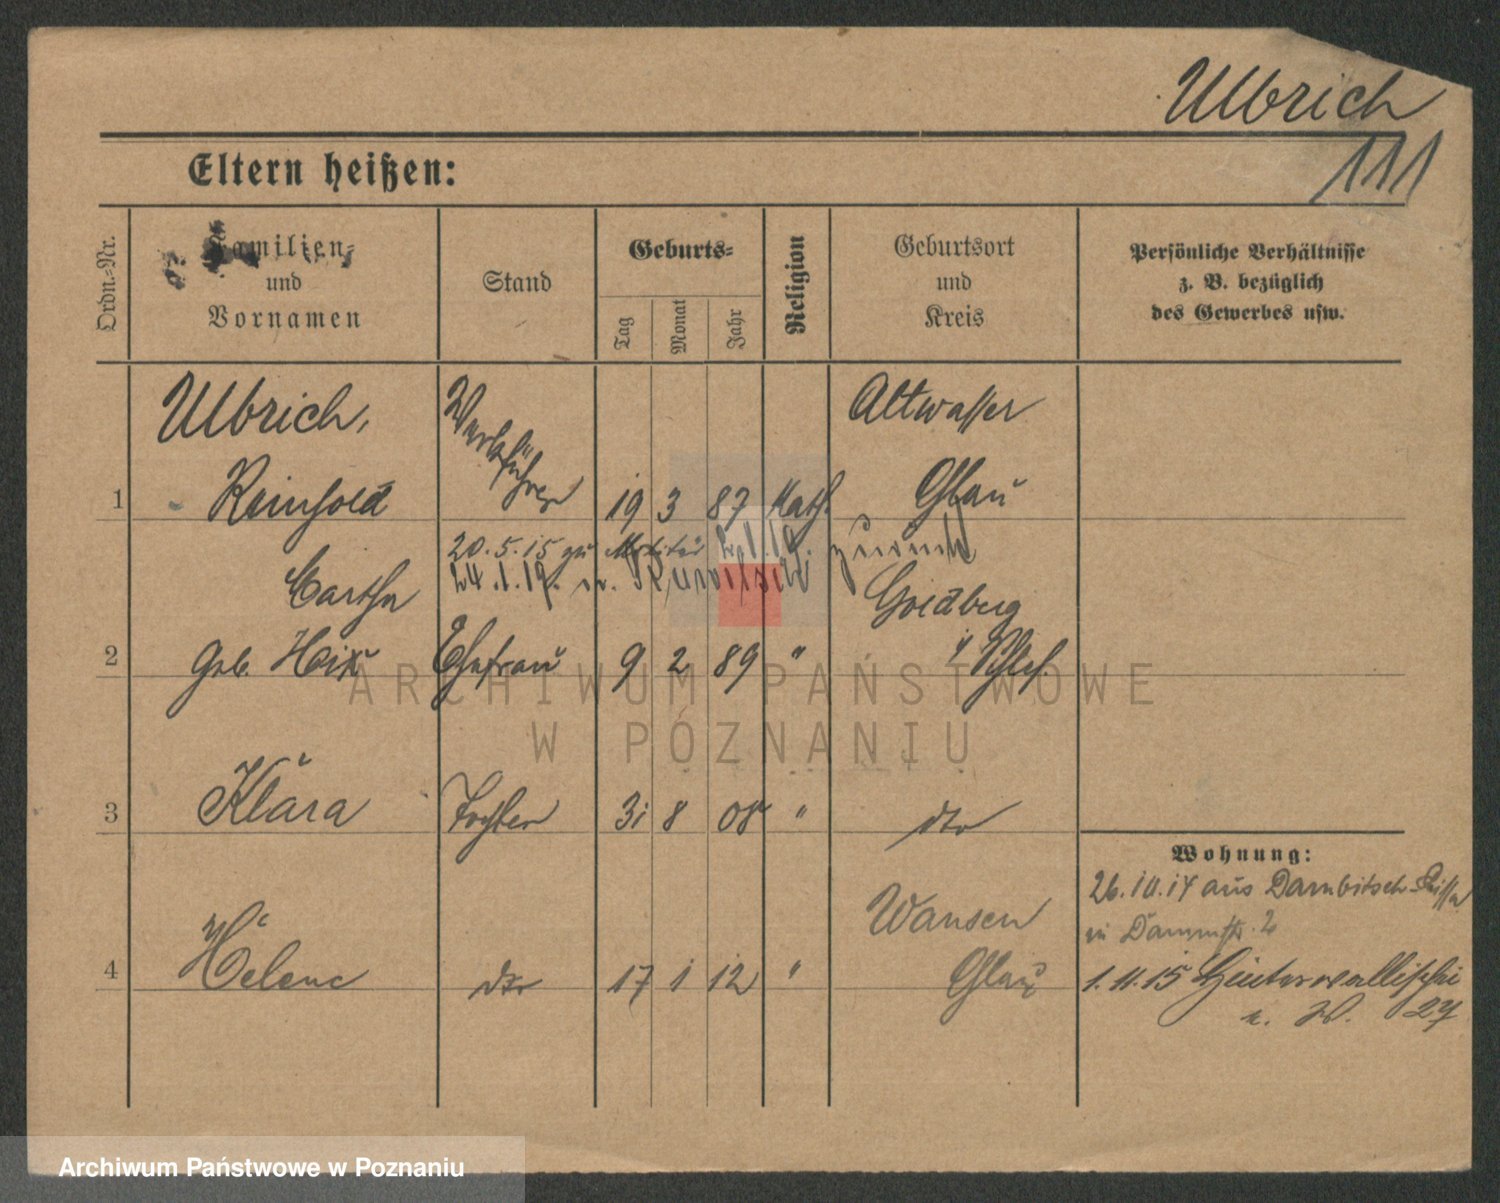 Ulbrich
111
Eltern heißen:
Ordn.-Nr.
Familien-
und
Vornamen
Stand
Geburts-
Tag
Monat
Jahr
Religion
Geburtsort
und
Kreis
Persönliche Verhältnisse
z. B. bezüglich
des Gewerbes usw.
Ulbrich,
Werkführer
Altwasser
1 Reinhold 19 3 87 Kath. Glau
20.5.15 zu Militär 2.1.19. zurück
24.1.19. n.
Goldberg
2 geb. Ehefrau 9 2 89 " i/Schles.
3 Klara Tochter 31 8 08 " dto
Wohnung:
26.10.14 aus Dambitsch-Lissa
in Dammstr. 2
Wansen
4 Helene dto 17 1 12 " Ohlau
1.11.15 Hinterwallischei
n. W. 27
ARCHIWUM PAŃSTWOWE
W POZNANIU
Archiwum Państwowe w Poznaniu